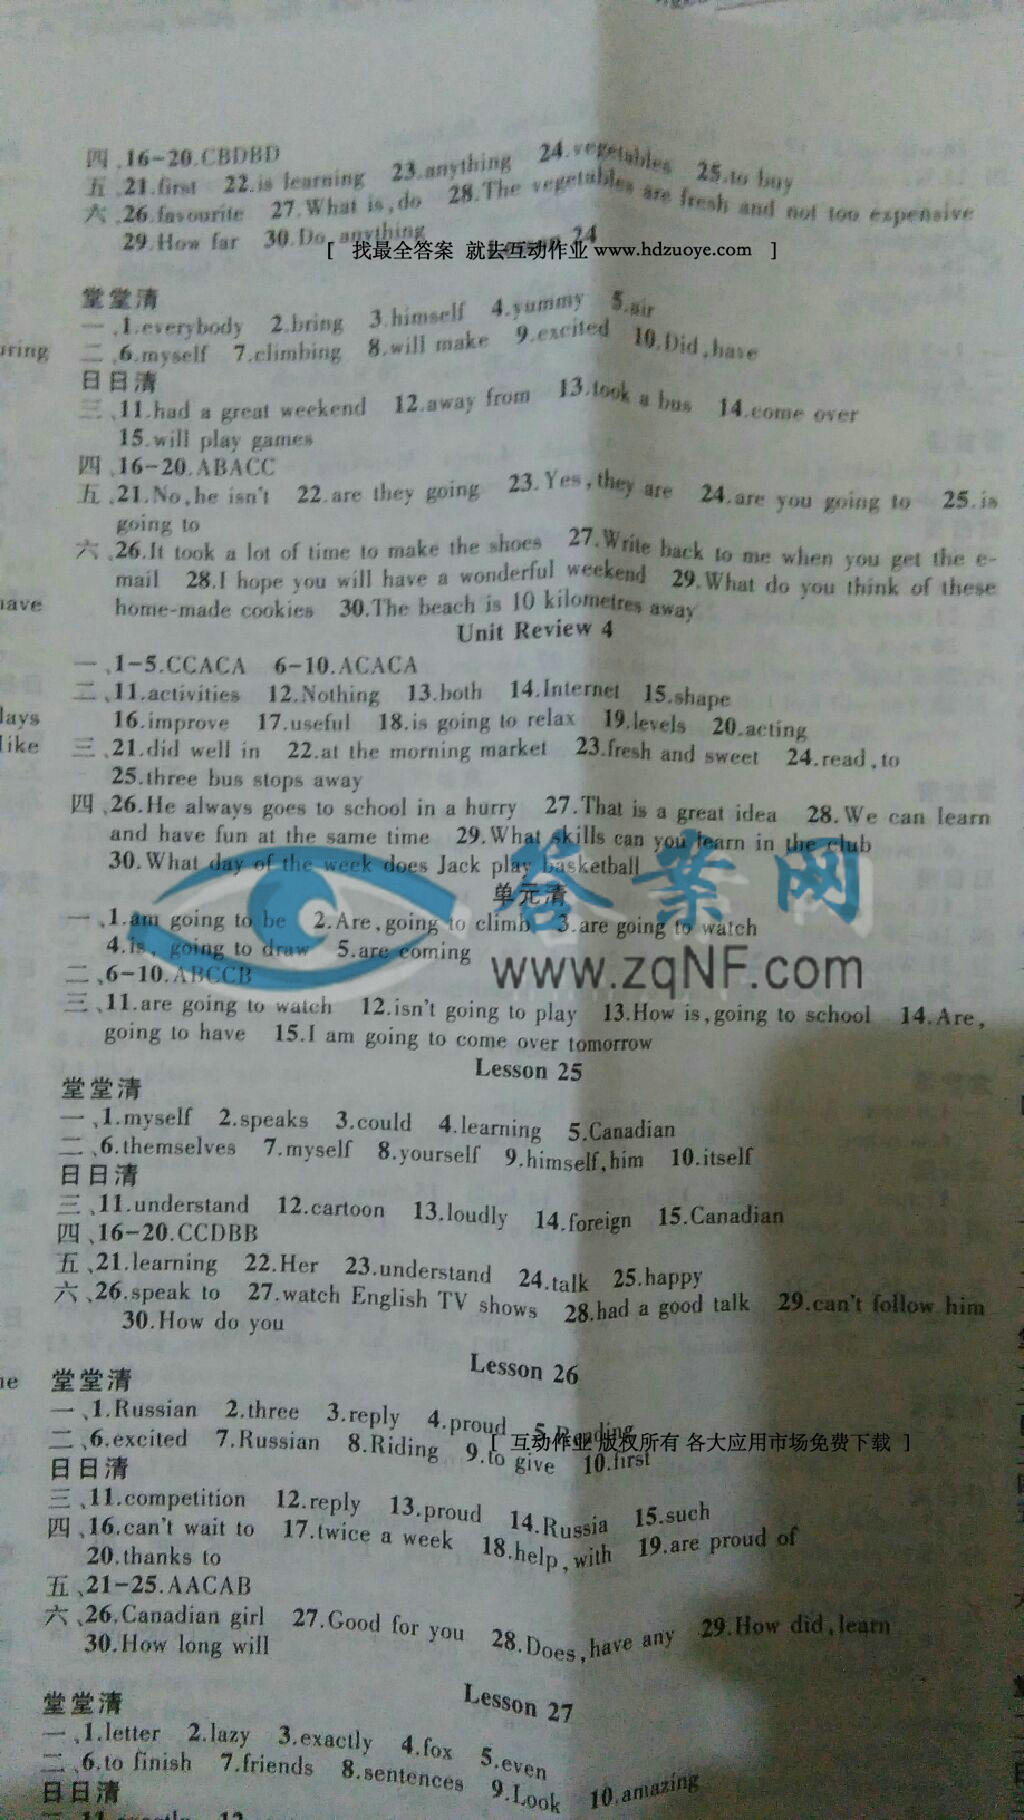 四、16-20.CBDBD
五、21.first 22.is learning 23.anything 24.vegetables 25.to buy
六、26.favourite 27.What is,do 28.The vegetables are fresh and not too expensive
29.How far 30.Do,anything
24
[ 找最全答案 就去互动作业 www.hdzuoye.com ]
堂堂清
一、1.everybody 2.bring 3.himself 4.yummy 5.air
二、6.myself 7.climbing 8.will make 9.excited 10.Did,have
日日清
三、11.had a great weekend 12.away from 13.took a bus 14.come over
15.will play games
四、16-20.ABACC
五、21.No,he isn't 22.are they going 23.Yes,they are 24.are you going to 25.is
going to
六、26.It took a lot of time to make the shoes 27.Write back to me when you get the e-
mail 28.I hope you will have a wonderful weekend 29.What do you think of these
home-made cookies 30.The beach is 10 kilometres away
have
Unit Review 4
一、1-5.CCACA 6-10.ACACA
二、11.activities 12.Nothing 13.both 14.Internet 15.shape
16.improve 17.useful 18.is going to relax 19.levels 20.acting
like
三、21.did well in 22.at the morning market 23.fresh and sweet 24.read,to
25.three bus stops away
四、26.He always goes to school in a hurry 27.That is a great idea 28.We can learn
and have fun at the same time 29.What skills can you learn in the club
30.What day of the week does Jack play basketball
答案网
www.zqNF.com
单元清
一、1.am going to be 2.Are,going to climb 3.are going to watch
4.is, going to draw 5.are coming
二、6-10.ABCCB
三、11.are going to watch 12.isn't going to play 13.How is,going to school 14.Are,
going to have 15.I am going to come over tomorrow
Lesson 25
堂堂清
一、1.myself 2.speaks 3.could 4.learning 5.Canadian
二、6.themselves 7.myself 8.yourself 9.himself,him 10.itself
日日清
三、11.understand 12.cartoon 13.loudly 14.foreign 15.Canadian
四、16-20.CCDBB
五、21.learning 22.Her 23.understand 24.talk 25.happy
六、26.speak to 27.watch English TV shows 28.had a good talk 29.can't follow him
30.How do you
Lesson 26
堂堂清
一、1.Russian 2.three 3.reply 4.proud 5.Reading
二、6.excited 7.Russian 8.Riding 9.to give 10.first
[ 互动作业 版权所有 各大应用市场免费下载 ]
日日清
三、11.competition 12.reply 13.proud 14.Russia 15.such
四、16.can't wait to 17.twice a week 18.help,with 19.are proud of
20.thanks to
五、21-25.AACAB
六、26.Canadian girl 27.Good for you 28.Does,have any 29.How did,learn
30.How long will
Lesson 27
堂堂清
一、1.letter 2.lazy 3.exactly 4.fox 5.even
二、6.to finish 7.friends 8.sentences 9.Look 10.amazing
日日清